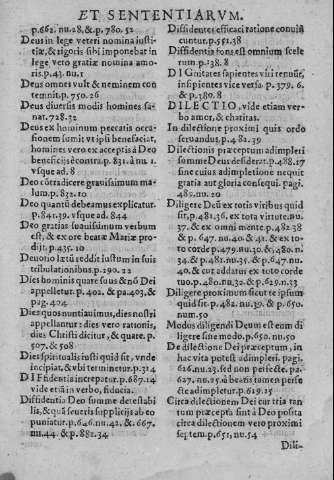 ET SENTENTIARVM.
p.662. nu.28, & p. 780. 52
Deus in lege veteri nomina iusti-
tiæ, & rigoris sibi imponebat in
lege vero gratiæ nomina amo-
ris. p.43. nu.1
Deus omnes vult & neminem con
temnit. p.750. 26
Deus diuersis modis homines sa-
nat. 728.32
Deus ex hominum peccatis occa-
sionem sumit vt ipsi benefaciat,
homines vero ex acceptis à Deo
beneficijs cōtra. p. 831. à nu. 1.
vsque ad. 8
Deo cōtradicere grauissimum ma-
lum. p. 832. 10
Deo quantū debeamus explicatur.
p. 841.39. vsque ad. 844
Deo gratias suauissimum verbum
est, & ex ore beatæ Mariæ prodijt. p.435. 10
Deuotio lætū reddit iustum in suis
tribulationibus. p.290. 22
Dies hominis quare suus & nō Dei
appelletur. p. 402. & pa. 403, &
pag. 404
Dies quos nuntiauimus, dies nostri
appellantur: dies vero rationis,
dies Christi dicitur, & quare. p.
507. & 508
Dies spiritualis iusti quid sit, vnde
incipiat, & vbi terminetur. p. 314
DIffidentia increpatur. p.687.14
vide etiā in verbo, fiducia.
Diffidentia Deo summe detestabi
lis, & quā seueris supplicijs ab eo
puniatur. p.646. nu.42. & 667.
nu.44. & p. 882.34
Diffidentes efficaci ratione conuiñ
cuntur. p.581.38
Diffidentia fons est omnium scele
rum p.138. 8
DIGnitates sapientes viri renuūt,
insipientes vice versa p. 379. 6.
& p.380. 8
DILECTIO, vide etiam ver-
bo amor, & charitas.
In dilectione proximi quis ordo
seruandus. p.482.39
Dilectionis præceptum adimpleri
summe Deus desiderat. p.488.17
sine cuius adimpletione nequit
gratia aut gloria consequi. pagi.
489. nu. 20
Diligere Deū ex totis viribus quid
sit, p.481.36. ex tota virtute. nu.
37. & ex omni mente. p.482.38
& p. 647. nu.40. & 41. & ex to-
to corde p.479. nu.30. & .480. n.
34. & p.481. nu.35. & p.647. nu.
40. & cur addatur ex toto corde
tuo. p.480. nu.32. & p.629. n.33
Diligere proximum sicut te ipsum
quid sit p. 482. nu.39. & p. 650.
num.50
Modus diligendi Deum est eum di
ligere sine modo. p.650. nu.50
De dilectione Dei præceptum, in
hac vita potest adimpleri. pagi.
626. nu.23. sed non perfecte. pa.
627. nu.25. à beatis tamen perfe
cte adimpletur. p.619.25
Circa dilectionem Dei cur tria tan
tum præcepta sint à Deo posita
circa dilectionem vero proximi
septem. p.651. nu.54
Dili-